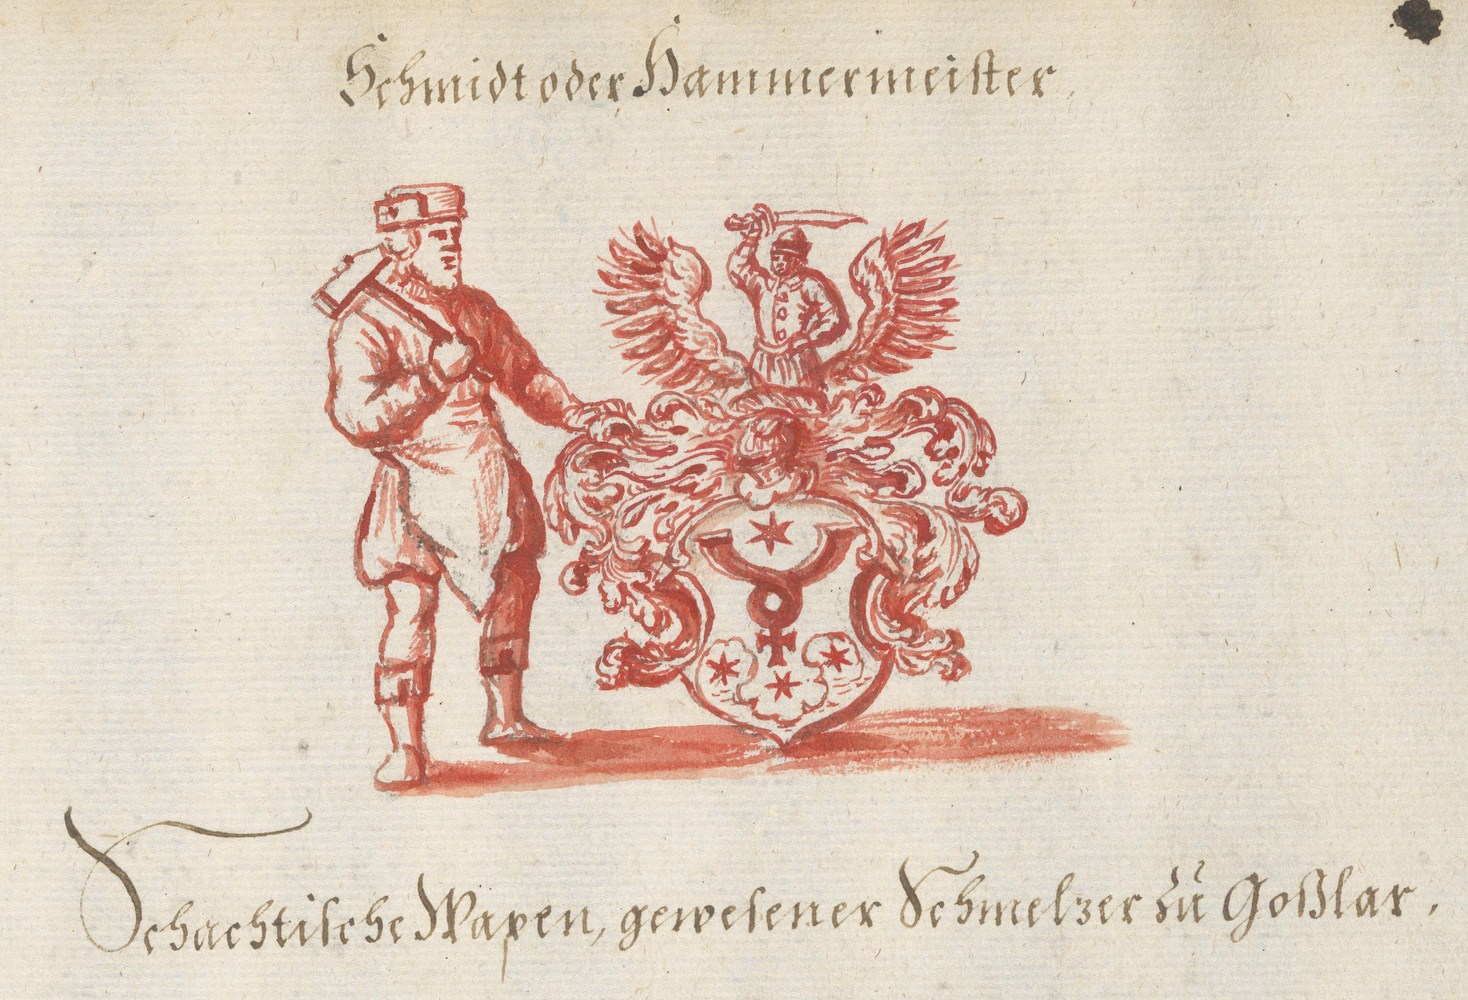 Schmidt oder Hammermeister.
Schachtische Wapen, gewesener Schmelzer zu Goßlar.